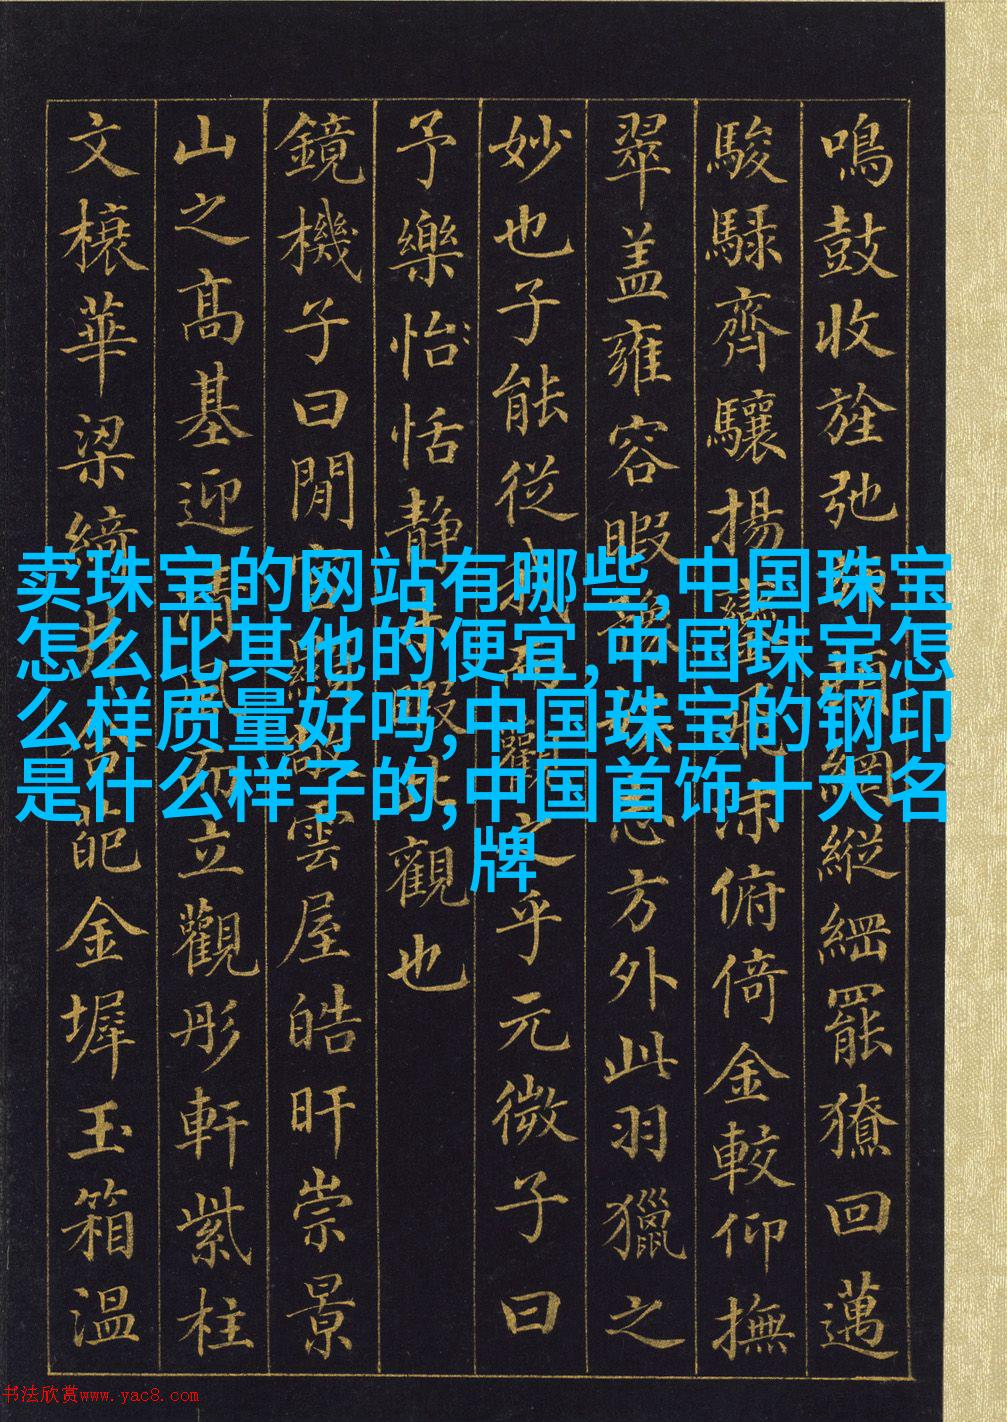 鳴鼓收旌弛旆頓網縱綱罷獠回邁
駿騄齊驤揚鑾飛沫俯倚金較仰撫
翠盖雍容暇豫娛志方外此羽獵之
妙也子能從我而觀之乎元微子曰
予樂怡恬靜未暇此觀也
鏡機子曰閒宮顯敞雲屋皓旰崇景
山之高基迎清風而立觀彤軒紫柱
文榱華梁綺井含葩金墀玉箱溫
卖珠宝的网站有哪些,中国珠宝
怎么比其他的便宜,中国珠宝怎
么样质量好吗,中国珠宝的钢印
是什么样子的,中国首饰十大名
牌
书法欣赏www.yac8.com